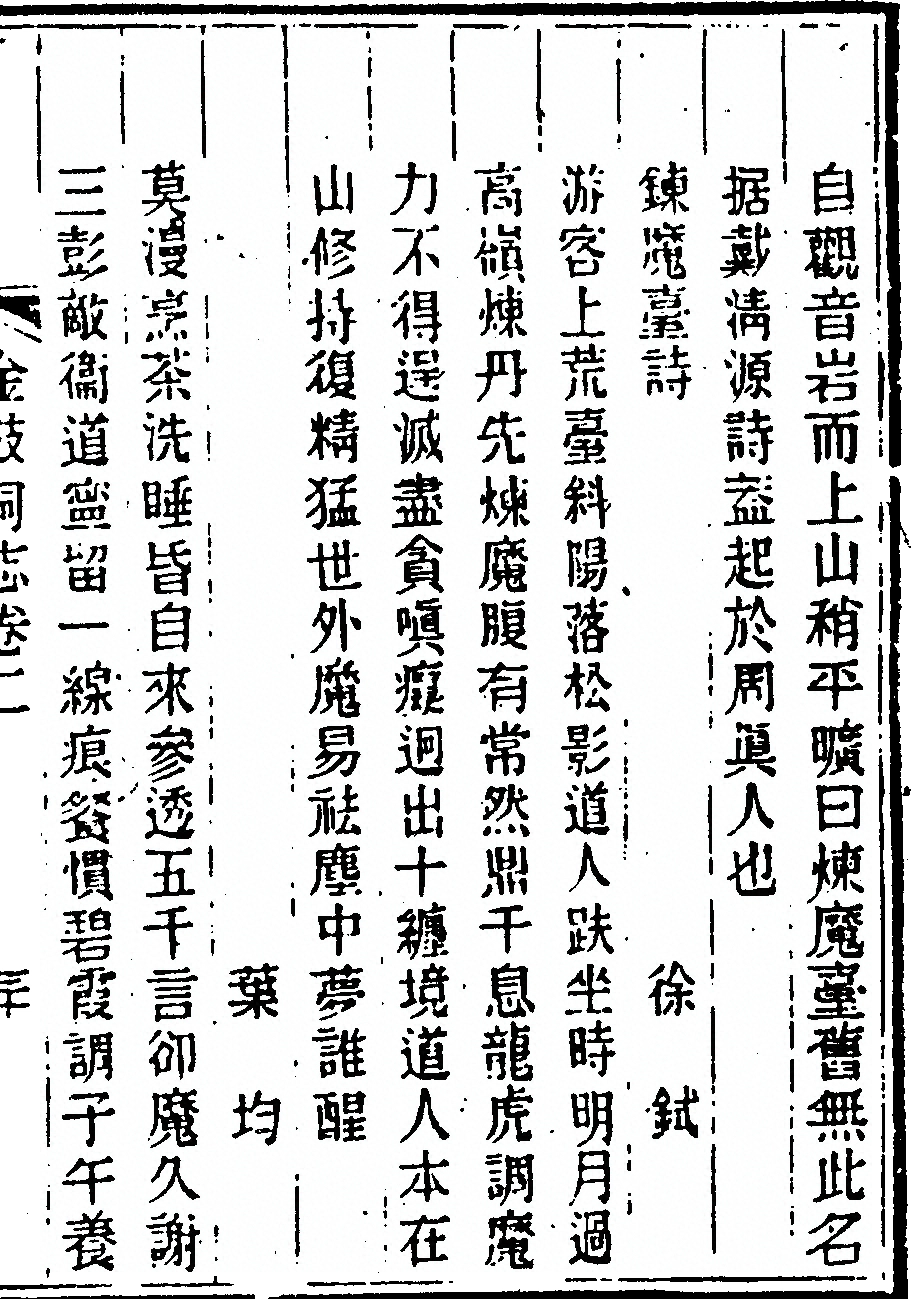 自觀音岩而上山稍平曠曰煉魔臺舊無此名
据戴清源詩葢起於周眞人也
鍊魔臺詩　徐　鉽
游客上荒臺斜陽落松影道人趺坐時明月過
高嶺煉丹先煉魔腹有常然鼎千息龍虎調魔
力不得逞滅盡貪嗔癡迥出十纏境道人本在
山修持復精猛世外魔易祛塵中夢誰醒
葉　均
莫漫烹茶洗睡昏自來參透五千言卻魔久謝
三彭敵衞道寧留一線痕餐慣碧霞調子午養
金鼓洞志卷二